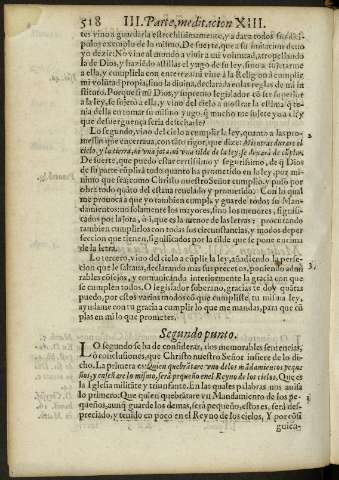 518 III. Parte, meditacion XIII.
tes vino a guardarla estrechissimamente, y a dar a todos sus discipulos
exemplo de lo mismo. De suerte, que a su imitacion deuo
yo dezir: No vine al mundo a viuir a mi voluntad, atropellando la
de Dios, y haziendo astillas el yugo de su ley, sino a sujetarme
a ella, y cumplirla con entereza: ni vine à la Religion à cumplir
mi voluntad propia, sino la diuina, declarada en las reglas de mi instituto.
Porque si mi Dios, y supremo legislador cõ ser superior
a la ley, se sujetò a ella, y vino del cielo a mostrar la estima q̃ tenia
della en tomar su mismo yugo, q̃ mucho me sujete yo a ella? y
que desverguença seria desecharle?
Lo segundo, vino del cielo a cumplir la ley, quanto a las promessas
que encerraua, con tãto rigor, que dize: Mientras durare el
cielo, y la tierra, ni vna jota ni vna tilde de la ley, se dexarà de cũplir. 2
De suerte, que puedo estar certissimo y segurissimo, de q̃ Dios
de su parte cũplirà todo quanto ha prometido en la ley, por minimo
que sea; como Christo nuestro Señor cumplio, y puso por
obra todo quãto del estaua reuelado y prometido. Con lo qual
me prouoca a que yo tambien cumpla y guarde todos sus Mandamientos:
no solamente los mayores, sino los menores, significados
por la jota, ò i, que es la menor de las letras: procurando
tambien cumplirlos con todas sus circunstancias, y modos de perfeccion
que tienen, significados por la tilde que se pone encima
de la letra.
Lo tercero, vino del cielo a cũplir la ley, añadiendo la perfecion
que le faltaua, declarando mas sus preceptos, poniendo admirables 3
cõsejos, y comunicando interiormente la gracia con que
se cumplen todos. O legislador soberano, gracias te doy quãtas
puedo, por estos varios modos cõ que cumpliste tu misma ley,
ayudame con tu gracia a cumplir lo que me mandas, para que cũplas
en mi lo que prometes.
Segundo punto.
LO segundo se ha de considerar, dos memorables sentencias,
ò conclusiones, que Christo nuestro Señor infiere de lo dicho.
La primera es: Quien quebrãtare vno de los mãdamientos pequeños,
y enseñare lo mismo, serà pequeño en el Reyno de los cielos, Que es
la Iglesia militãte y triunfante. En las quales palabras nos auisa
lo primero: Que quien quebrãtare vn Mandamiento de los pequeños, 1
aunq̃ guarde los demas, serà pequeño, esto es, serà despreciado,
y tenido en poco en el Reyno de los cielos, Y por cõsiguien-